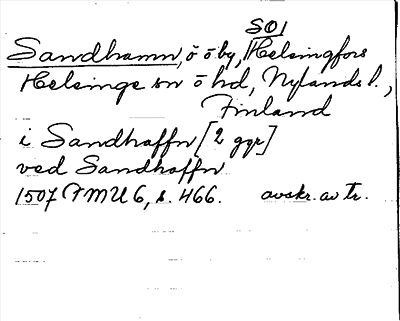 SOI
Sandhamn, ö ö by, Helsingfors
Helsinge sn ö hd, Nylands l.,
Finland
i Sandhaffn [2 ggr]
ved Sandhaffn
1507 FMU 6, s. 466. avskr. av tr.